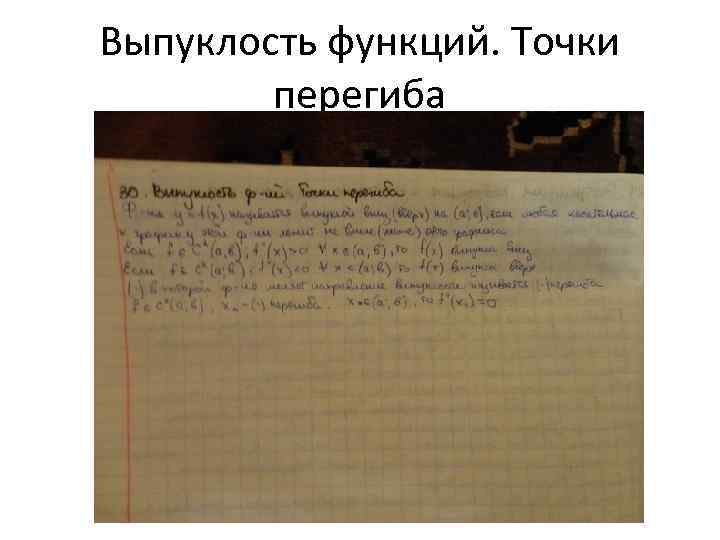 Выпуклость функций. Точки
перегиба
30. Выпуклость ф-ий. Точки перегиба
Ф-ия y=f(x) называется выпуклой вниз (вверх) на (a;b), если любая касательная
к графику этой ф-ии лежит не выше (ниже) его графика
Если f ∈ C²(a,b), f''(x)>0 ∀ x∈(a,b), то f(x) выпукла вниз
Если f ∈ C²(a;b), f''(x)<0 ∀ x∈(a;b) то f(x) выпукла вверх
(·) в которой ф-ия меняет направление выпуклости называется (·) перегиба
f ∈ C²(a;b), x₀ - (·) перегиба. x₀∈(a,b), то f''(x₀)=0